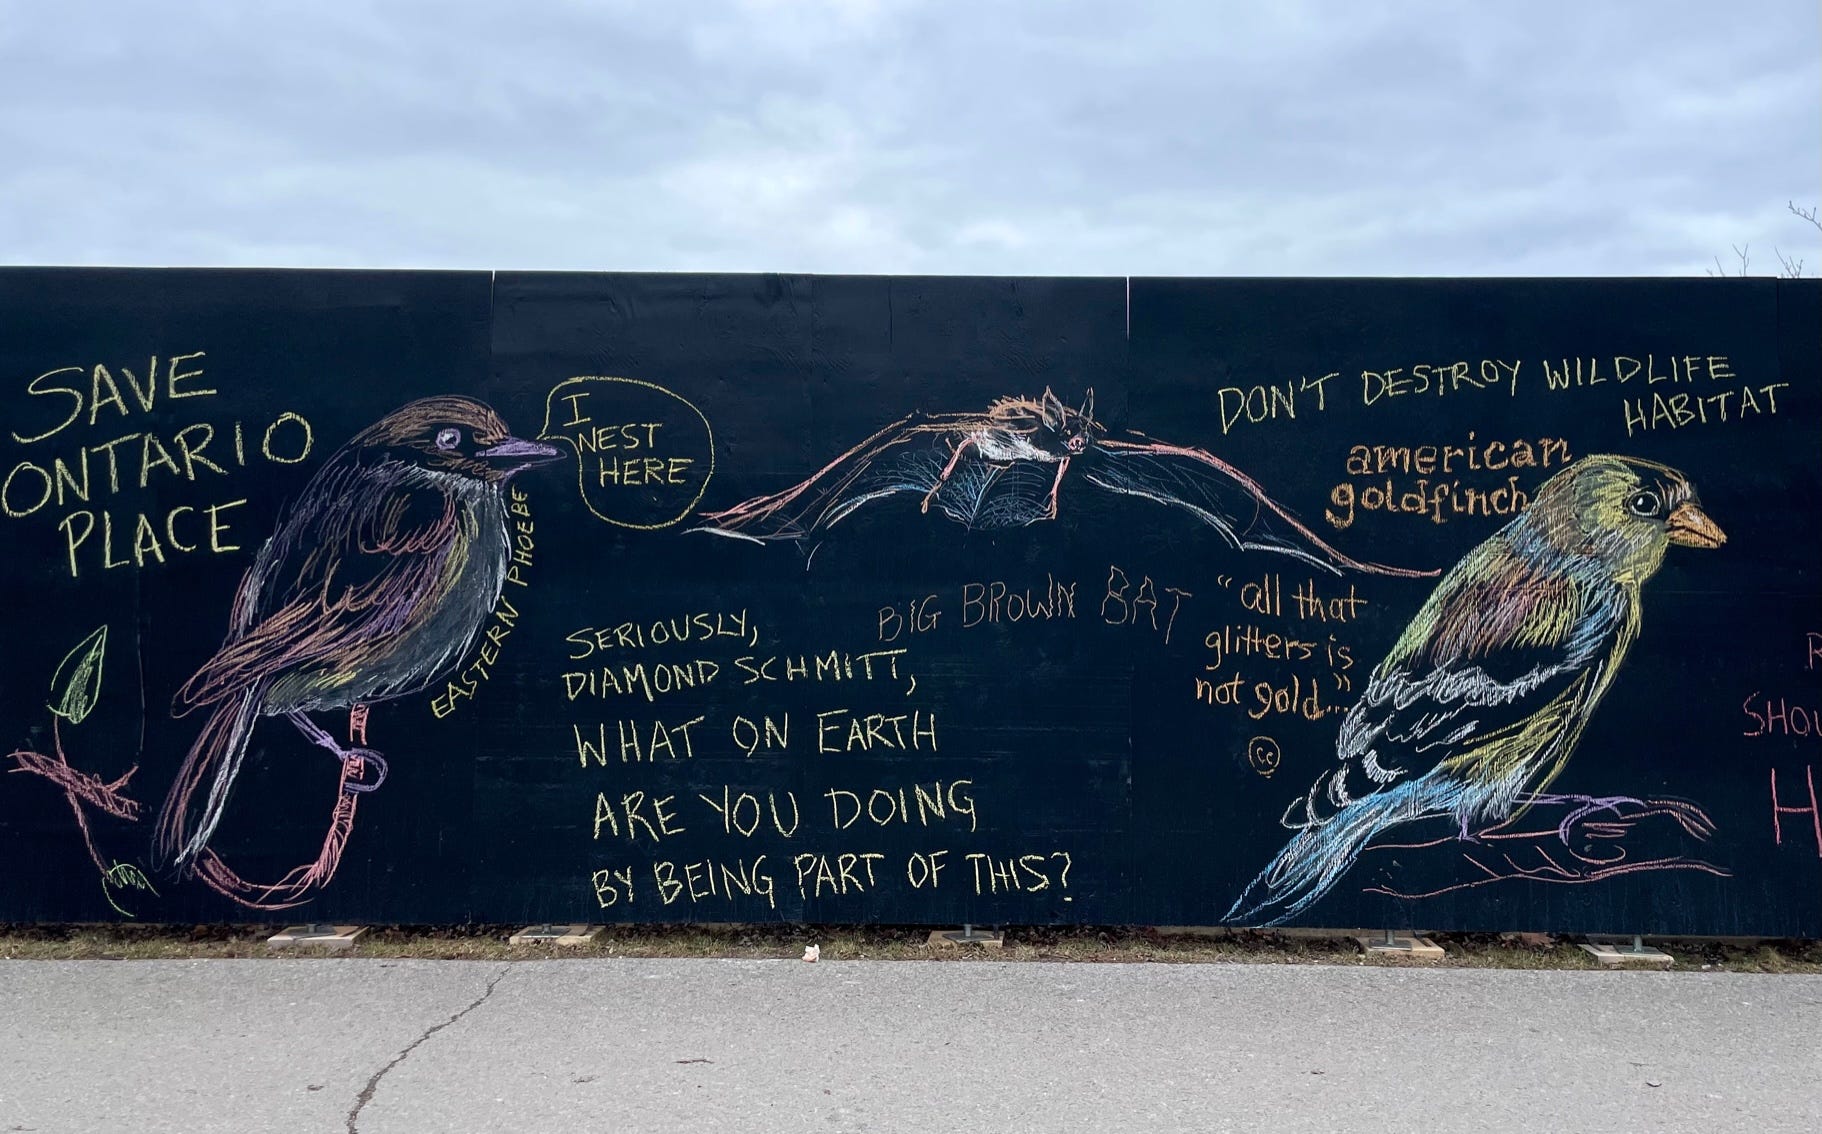 SAVE
ONTARIO
PLACE
EASTERN PHOEBE
I
NEST
HERE
SERIOUSLY,
DIAMOND SCHMITT,
WHAT ON EARTH
ARE YOU DOING
BY BEING PART OF THIS?
BIG BROWN BAT
DON'T DESTROY WILDLIFE
HABITAT
american
goldfinch
"all that
glitters is
not gold..."
cc
SHOU
H